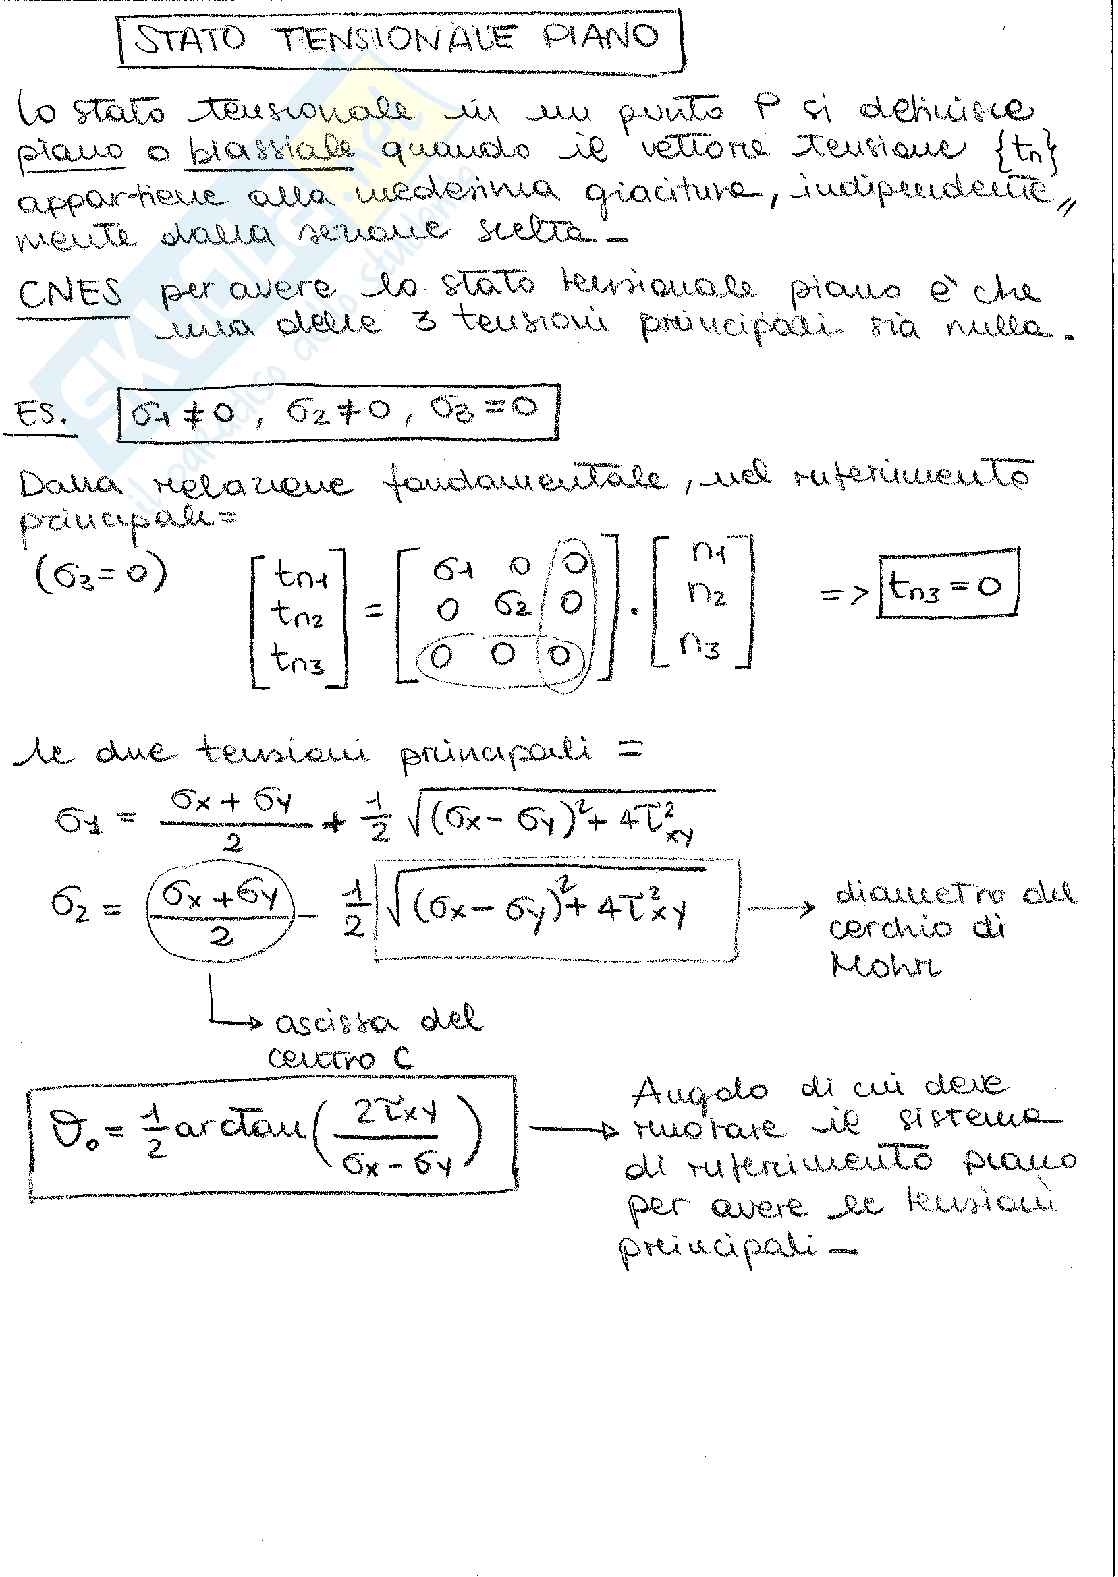 STATO TENSIONALE PIANO
Lo stato tensionale in un punto P si definisce
piano o biassiale quando il vettore tensione {tn}
appartiene alla medesima giacitura, indipendente„
mente dalla sezione scelta_
CNES per avere lo stato tensionale piano è che
una delle 3 tensioni principali sia nulla.
ES. σ1≠0, σ2≠0, σ3=0
Dalla relazione fondamentale, nel riferimento
principali=
(σ3=0) [tn1 tn2 tn3] = [σ1 0 0 0 σ2 0 0 0 0] · [n1 n2 n3] => tn3=0
le due tensioni principali =
σ1 = (σx+σy)/2 + 1/2 √((σx-σy)²+4τ²xy)
σ2 = (σx+σy)/2 - 1/2 √((σx-σy)²+4τ²xy) → diametro del
cerchio di
Mohr
→ ascissa del
centro C
ϑ0 = 1/2 arctan(2τxy/(σx-σy)) → Angolo di cui deve
ruotare il sistema
di riferimento piano
per avere le tensioni
principali_
SKUOLA.net